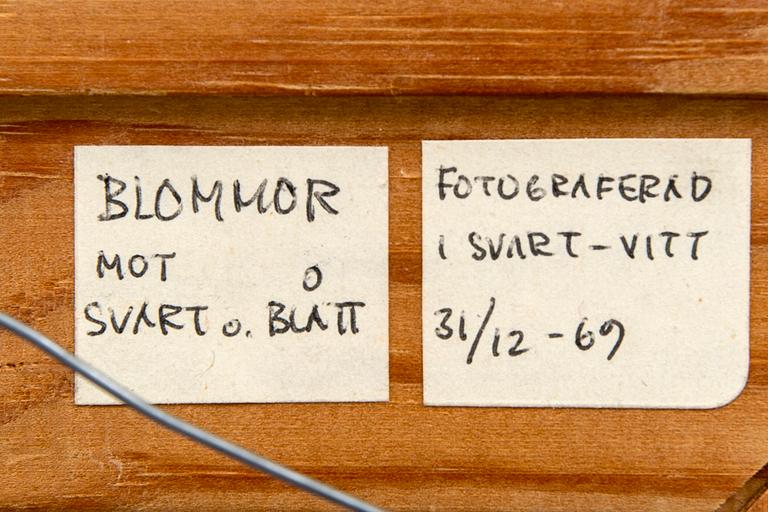 BLOMMOR
MOT
SVART o. BLÅTT
FOTOGRAFERAD
I SVART-VITT
31/12-69